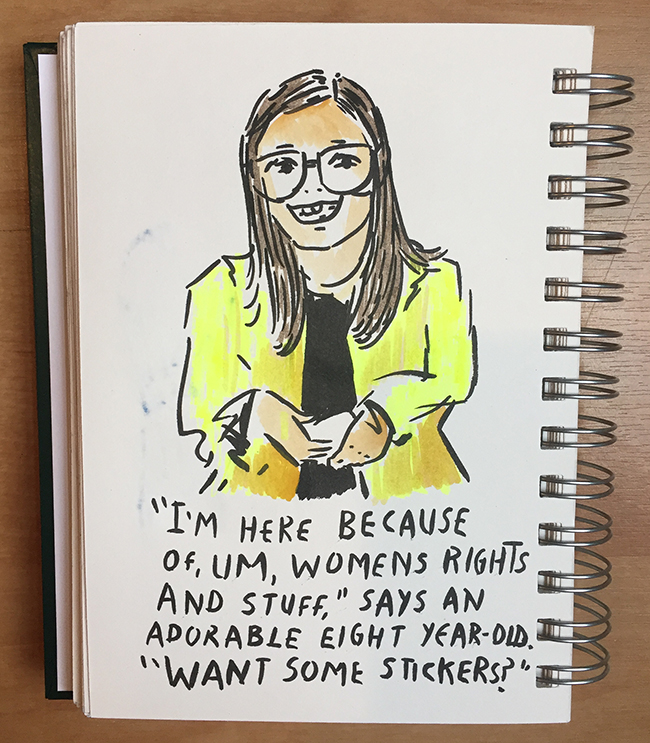 "I'M HERE BECAUSE
OF, UM, WOMENS RIGHTS
AND STUFF," SAYS AN
ADORABLE EIGHT YEAR-OLD.
"WANT SOME STICKERS?"